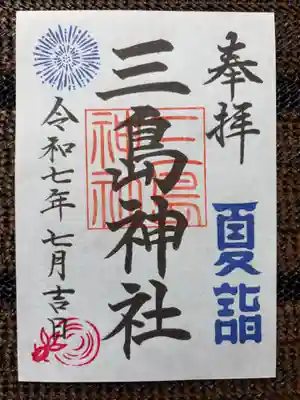 奉拝
夏詣
三島神社
三島
神社
令和七年七月吉日